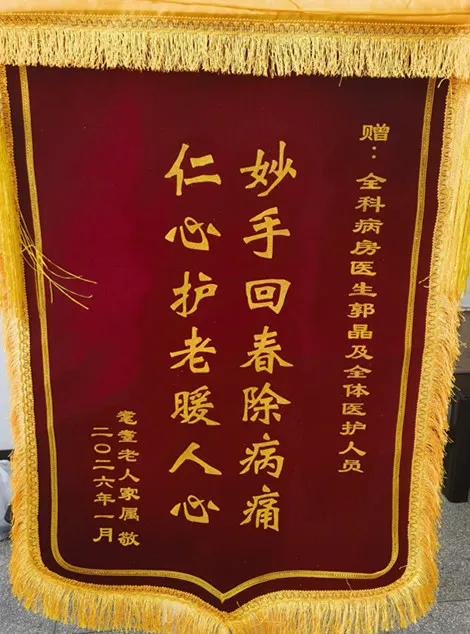 赠：全科病房医生郭晶及全体医护人员
妙手回春除病痛
仁心护老暖人心
耄耋老人家属敬
二〇二六年一月